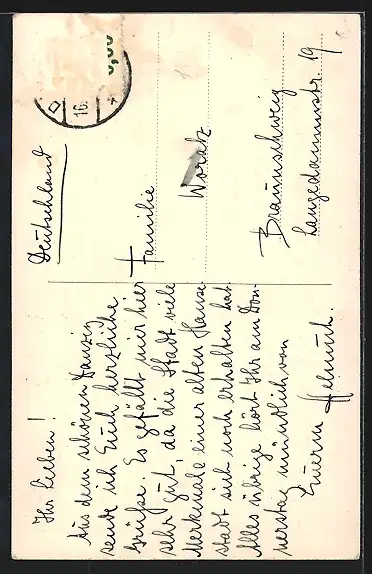 Ihr Lieben!
Aus dem schönen Danzig
sende ich Euch herzliche
Grüße. Es gefällt mir hier
sehr gut, da die Stadt viele
Merkmale einer alten Hanse
stadt sich noch erhalten hat.
Alles übrige hört Ihr am Don-
nerstag mündlich von
Euerm Helmut.
Deutschland
Familie
Woratz
Braunschweig
Langedammstr. 19
16.